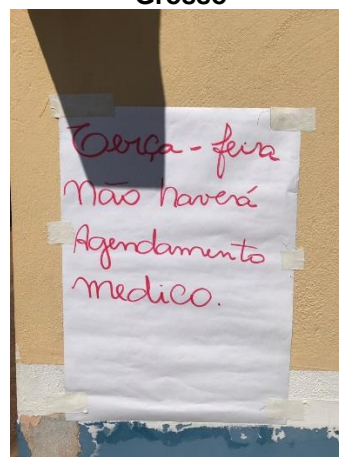 Grosso
Terça-feira
não haverá
Agendamento
medico.